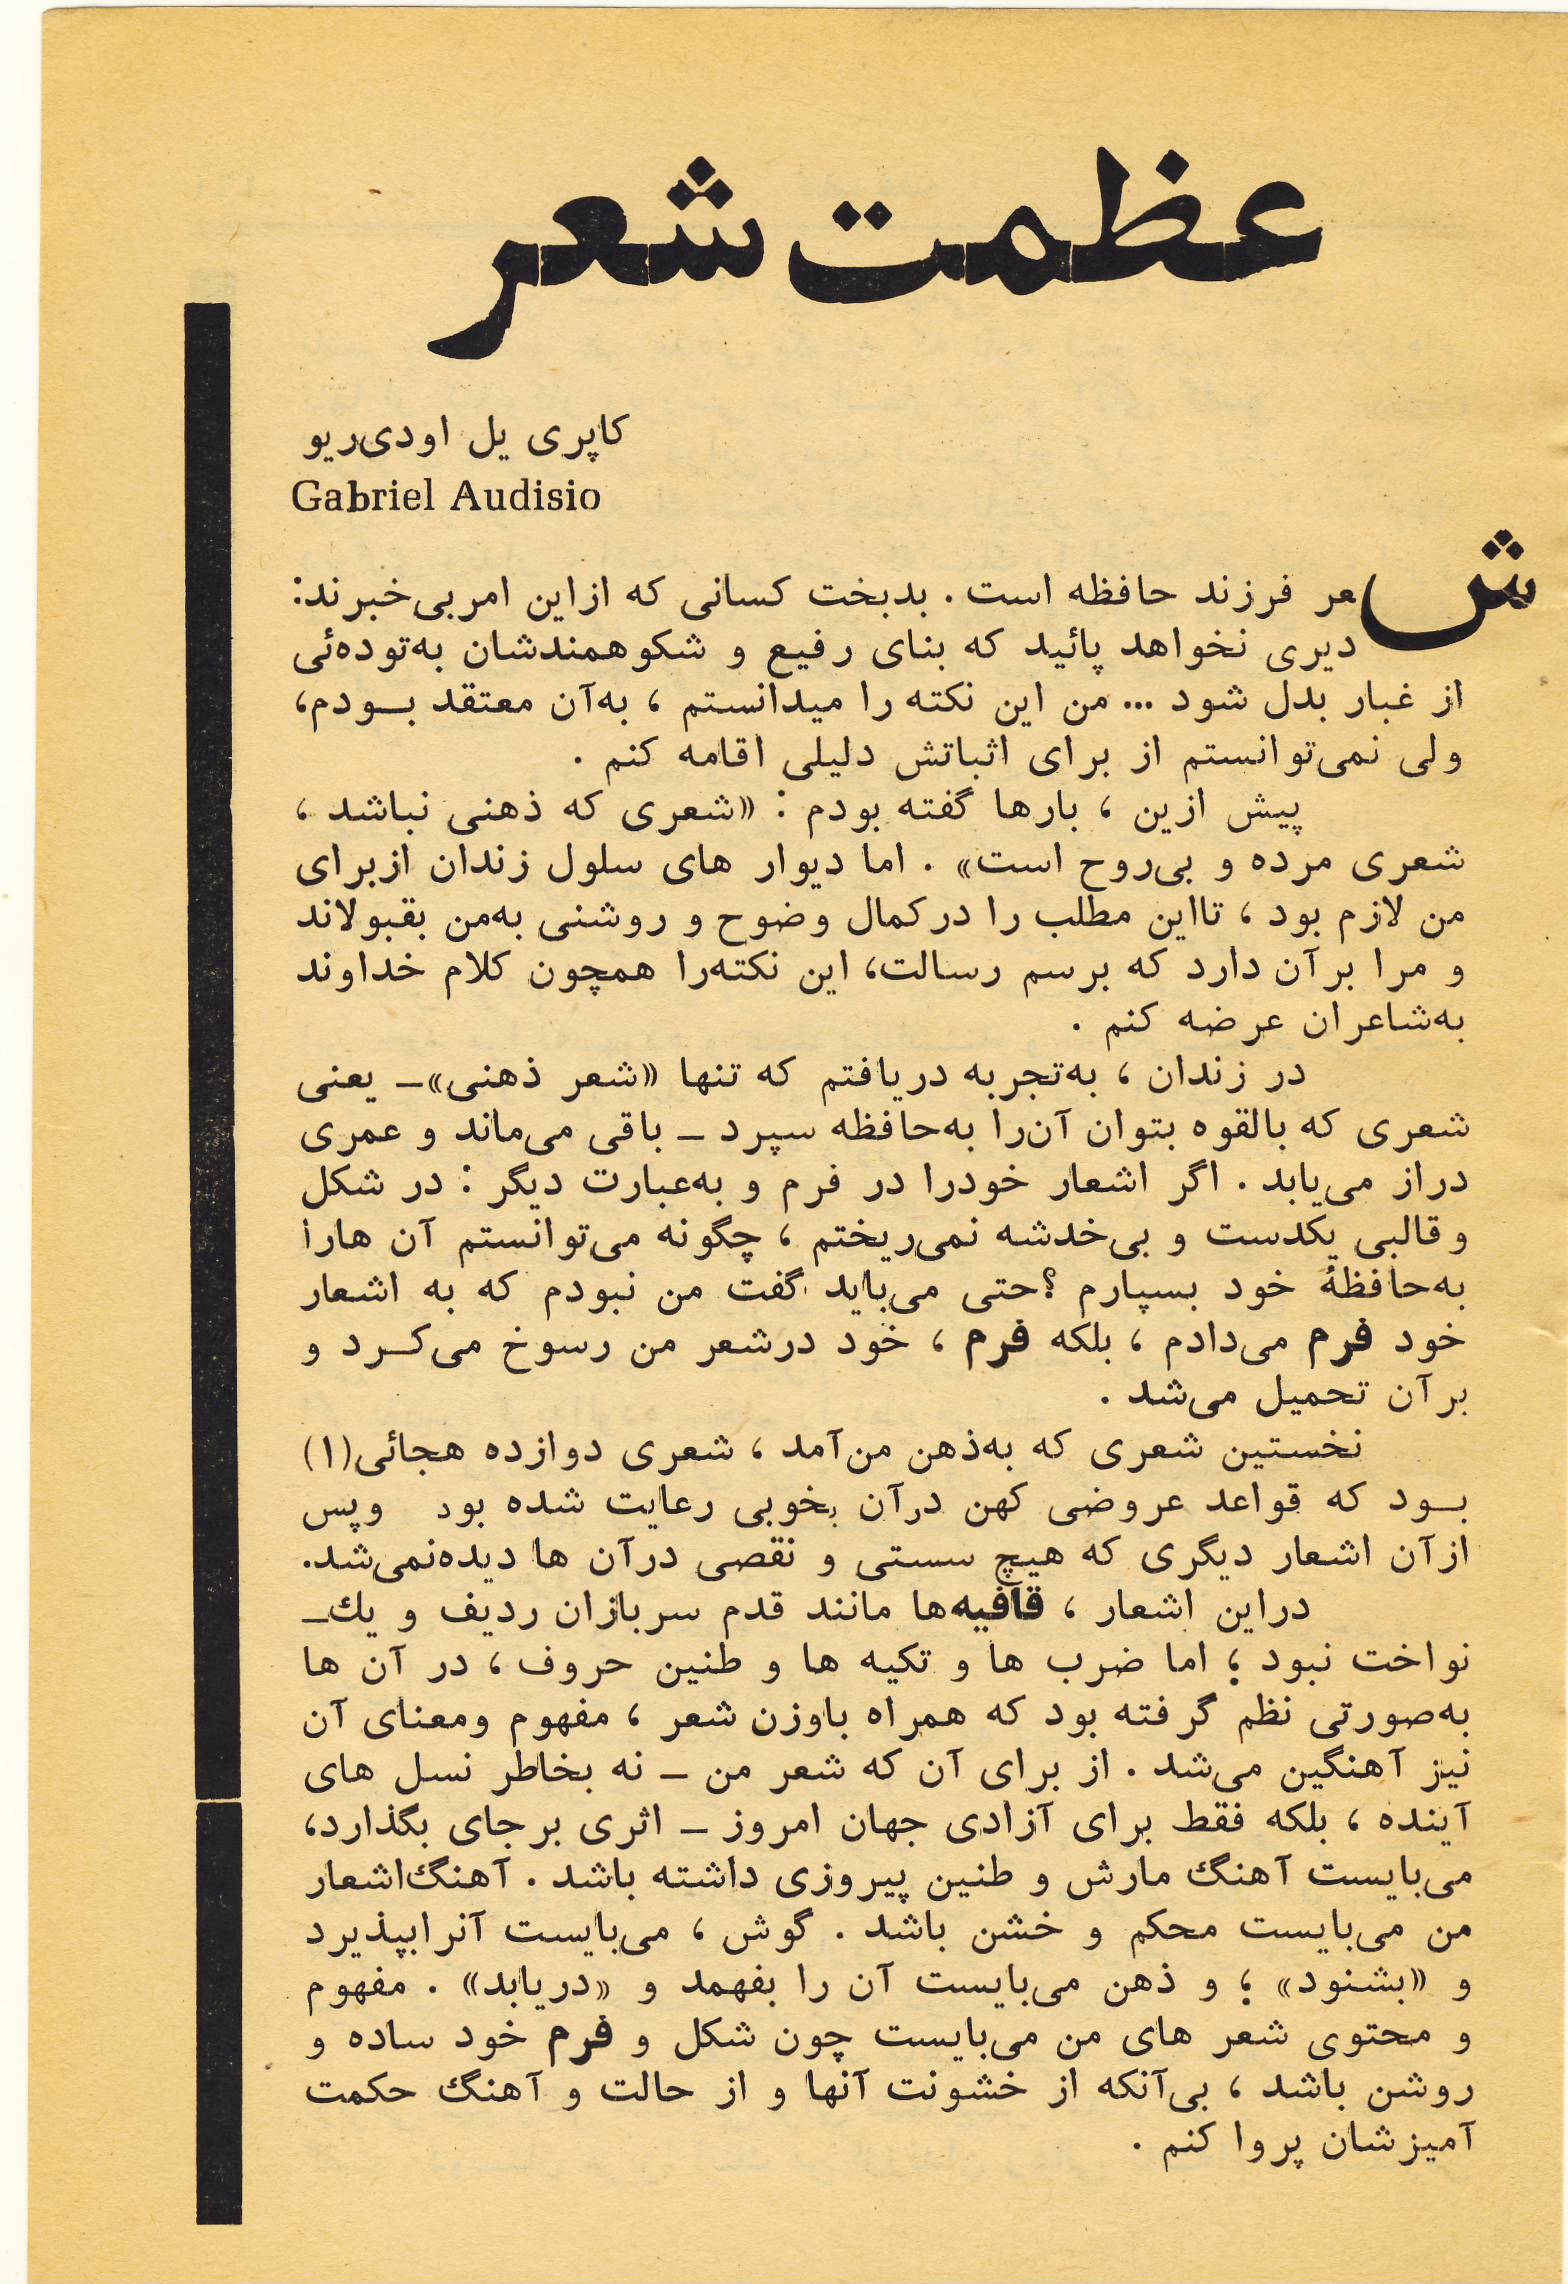 عظمت شعر
كاپری یل اودی‌ریو
Gabriel Audisio
شعر فرزند حافظه است . بدبخت كسانی كه ازاین امربی‌خبرند:
دیری نخواهد پائید كه بنای رفیع و شكوهمندشان به‌توده‌ئی
از غبار بدل شود ... من این نكته را میدانستم ، به‌آن معتقد بـودم،
ولی نمی‌توانستم از برای اثباتش دلیلی اقامه كنم .
پیش ازین ، بارها گفته بودم : «شعری كه ذهنی نباشد ،
شعری مرده و بی‌روح است» . اما دیوار های سلول زندان ازبرای
من لازم بود ، تااین مطلب را دركمال وضوح و روشنی به‌من بقبولاند
و مرا برآن دارد كه برسم رسالت، این نكته‌را همچون كلام خداوند
به‌شاعران عرضه كنم .
در زندان ، به‌تجربه دریافتم كه تنها «شعر ذهنی»ـ یعنی
شعری كه بالقوه بتوان آن‌را به‌حافظه سپرد ـ باقی می‌ماند و عمری
دراز می‌یابد . اگر اشعار خودرا در فرم و به‌عبارت دیگر : در شكل
و قالبی یكدست و بی‌خدشه نمی‌ریختم ، چگونه می‌توانستم آن هارا
به‌حافظهٔ خود بسپارم ؟حتی می‌باید گفت من نبودم كه به اشعار
خود فرم می‌دادم ، بلكه فرم ، خود درشعر من رسوخ می‌كـرد و
برآن تحمیل می‌شد .
نخستین شعری كه به‌ذهن من‌آمد ، شعری دوازده هجائی(۱)
بـود كه قواعد عروضی كهن درآن بخوبی رعایت شده بود وپس
ازآن اشعار دیگری كه هیچ سستی و نقصی درآن ها دیده‌نمی‌شد.
دراین اشعار ، قافیه‌ها مانند قدم سربازان ردیف و یك‌ـ
نواخت نبود ؛ اما ضرب ها و تكیه ها و طنین حروف ، در آن ها
به‌صورتی نظم گرفته بود كه همراه باوزن شعر ، مفهوم ومعنای آن
نیز آهنگین می‌شد . از برای آن كه شعر من ـ نه بخاطر نسل های
آینده ، بلكه فقط برای آزادی جهان امروز ـ اثری برجای بگذارد،
می‌بایست آهنگ مارش و طنین پیروزی داشته باشد . آهنگ‌اشعار
من می‌بایست محكم و خشن باشد . گوش ، می‌بایست آنرابپذیرد
و «بشنود» ؛ و ذهن می‌بایست آن را بفهمد و «دریابد» . مفهوم
و محتوی شعر های من می‌بایست چون شكل و فرم خود ساده و
روشن باشد ، بی‌آنكه از خشونت آنها و از حالت و آهنگ حكمت
آمیزشان پروا كنم .